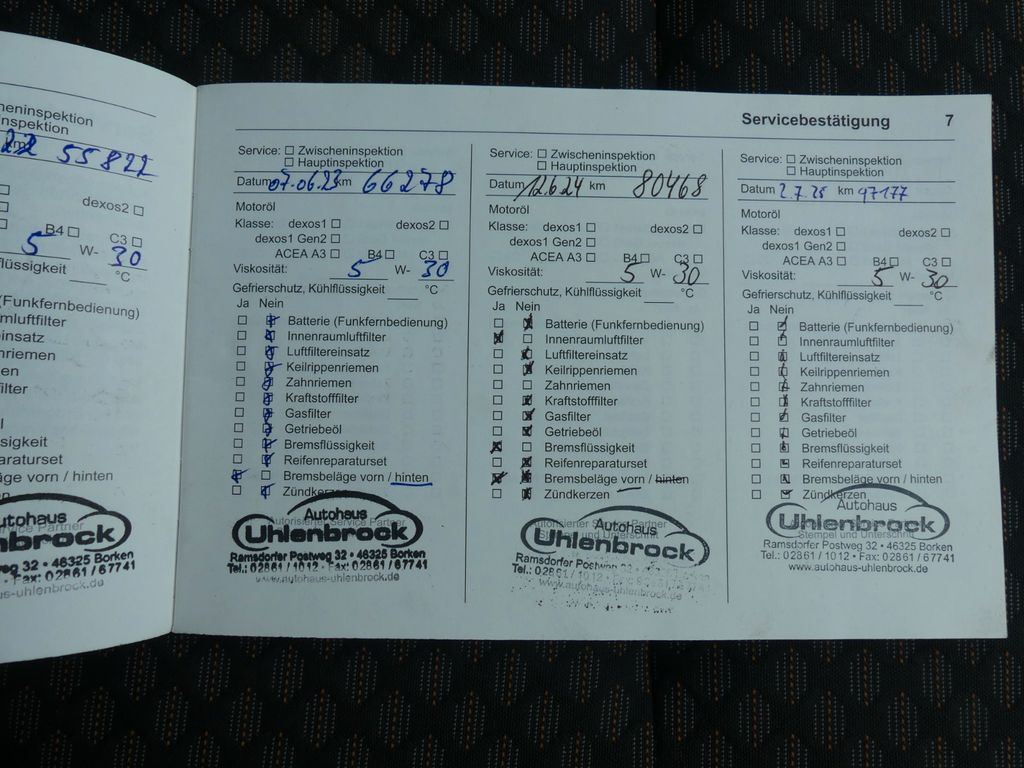 heninspektion
nspektion
km
22 55822
dexos2 ☐
B4 ☐ C3 ☐
5 W- 30
lüssigkeit °C
(Funkfernbedienung)
mluftfilter
einsatz
nriemen
en
ilter
sigkeit
araturset
äge vorn / hinten
utohaus
hlenbrock
eg 32 • 46325 Borken
Fax: 02861 / 67741
s-uhlenbrock.de
Servicebestätigung 7
Service: ☐ Zwischeninspektion
☐ Hauptinspektion
Datum 07.06.23 km 66278
Motoröl
Klasse: dexos1 ☐ dexos2 ☐
dexos1 Gen2 ☐
ACEA A3 ☐ B4 ☐ C3 ☐
Viskosität: 5 W- 30
Gefrierschutz, Kühlflüssigkeit °C
Ja Nein
Batterie (Funkfernbedienung)
Innenraumluftfilter
Luftfiltereinsatz
Keilrippenriemen
Zahnriemen
Kraftstofffilter
Gasfilter
Getriebeöl
Bremsflüssigkeit
Reifenreparaturset
Bremsbeläge vorn / hinten
Zündkerzen
Autorisierter Service Partner
Autohaus
Uhlenbrock
Ramsdorfer Postweg 32 • 46325 Borken
Tel.: 02861 / 1012 • Fax: 02861 / 67741
www.autohaus-uhlenbrock.de
Service: ☐ Zwischeninspektion
☐ Hauptinspektion
Datum 12.6.24 km 80468
Motoröl
Klasse: dexos1 ☐ dexos2 ☐
dexos1 Gen2 ☐
ACEA A3 ☐ B4 ☐ C3 ☐
Viskosität: 5 W- 30
Gefrierschutz, Kühlflüssigkeit °C
Ja Nein
Batterie (Funkfernbedienung)
Innenraumluftfilter
Luftfiltereinsatz
Keilrippenriemen
Zahnriemen
Kraftstofffilter
Gasfilter
Getriebeöl
Bremsflüssigkeit
Reifenreparaturset
Bremsbeläge vorn / hinten
Zündkerzen
Autohaus
Uhlenbrock
Ramsdorfer
Tel.: 02861 / 1012
Service: ☐ Zwischeninspektion
☐ Hauptinspektion
Datum 2.7.25 km 97177
Motoröl
Klasse: dexos1 ☐ dexos2 ☐
dexos1 Gen2 ☐
ACEA A3 ☐ B4 ☐ C3 ☐
Viskosität: 5 W- 30
Gefrierschutz, Kühlflüssigkeit °C
Ja Nein
Batterie (Funkfernbedienung)
Innenraumluftfilter
Luftfiltereinsatz
Keilrippenriemen
Zahnriemen
Kraftstofffilter
Gasfilter
Getriebeöl
Bremsflüssigkeit
Reifenreparaturset
Bremsbeläge vorn / hinten
Zündkerzen
Autohaus
Uhlenbrock
Stempel und Unterschrift
Ramsdorfer Postweg 32 • 46325 Borken
Tel.: 02861 / 1012 • Fax: 02861 / 67741
www.autohaus-uhlenbrock.de